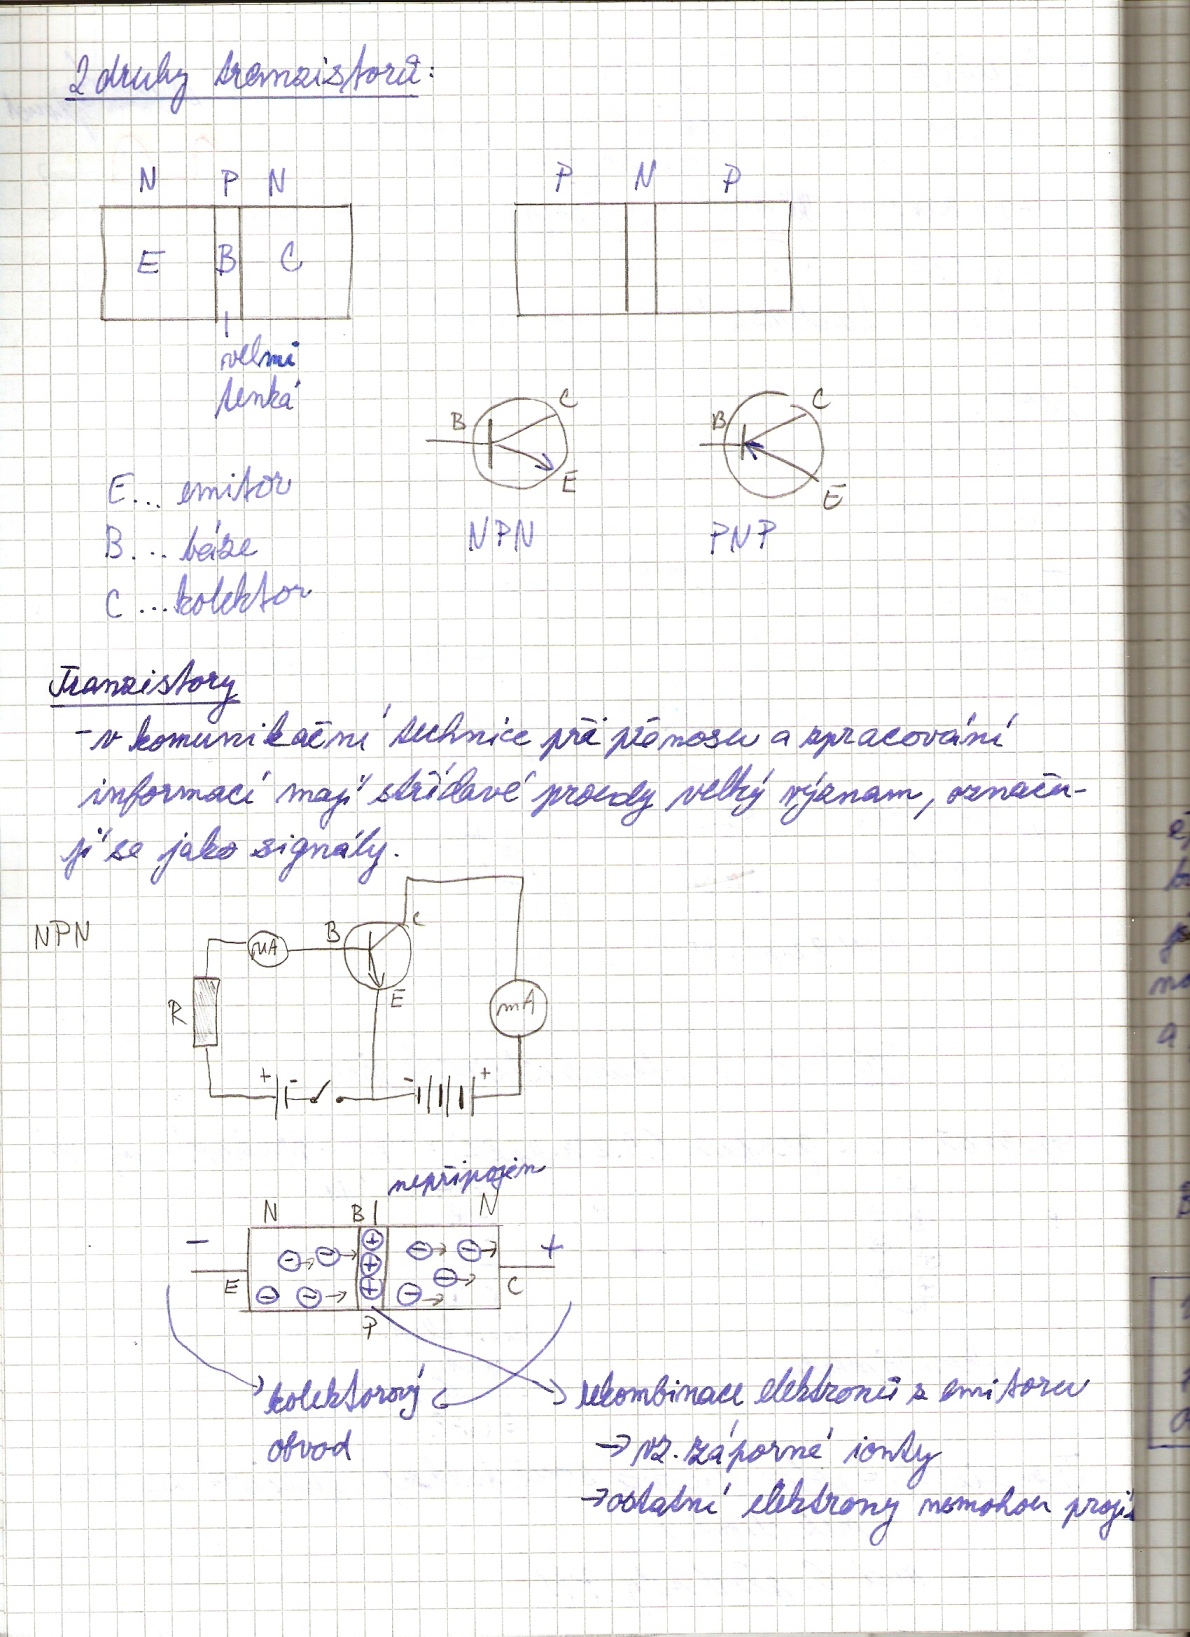 2 druhy tranzistorů:
N P N
P N P
E B C
velmi
tenká
B C E
B C E
NPN
PNP
E... emitor
B... báze
C ...kolektor
Tranzistory
- v komunikační technice při přenosu a zpracování
informací mají střídavé proudy velký význam, označu-
jí se jako signály.
NPN
B C
μA
E
R
mA
+ - - +
nepřipojen
N B N
- +
E C
P
kolektorový
obvod
rekombinace elektronů z emitoru
→ vz. záporné ionty
→ ostatní elektrony nemohou projít